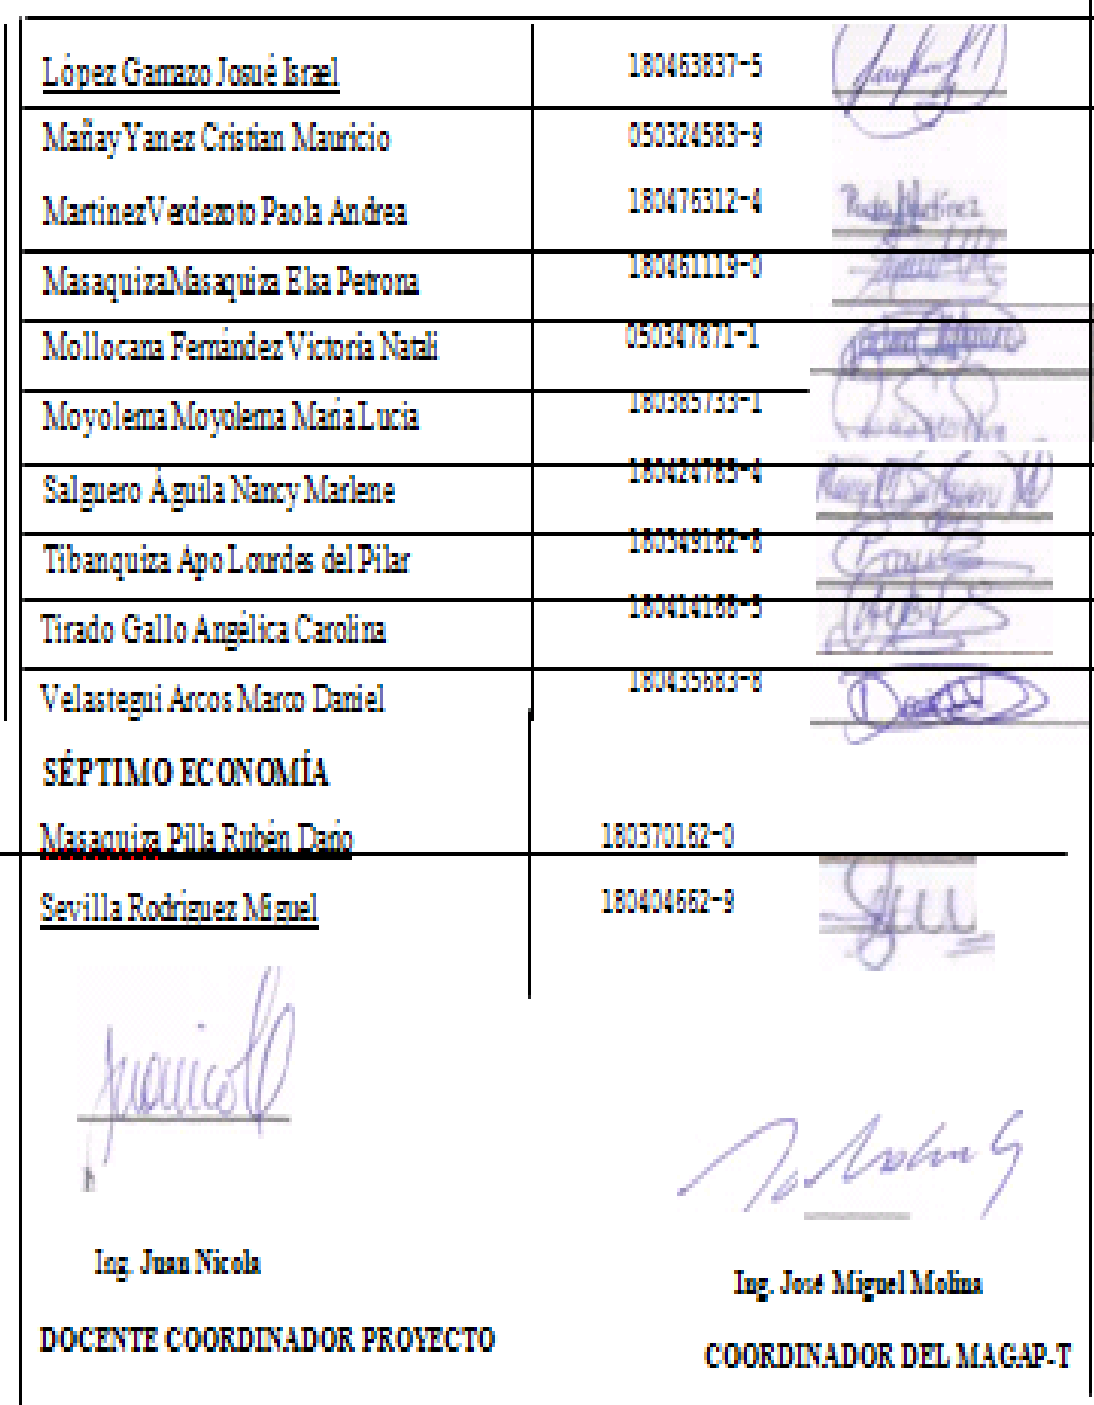 López Gamazo Josué Israel 180463837-5
Mañay Yanez Cristian Mauricio 050324583-9
MartinezVerdezoto Paola Andrea 180476312-4
MasaquizaMasaquiza Elsa Petrona 180461119-0
Mollocana Fernández Victoria Natali 050347871-1
Moyolema Moyolema María Lucia 180385733-1
Salguero Águila Nancy Marlene 180424785-4
Tibanquiza Apo Lourdes del Pilar 180349162-8
Tirado Gallo Angélica Carolina 180414166-5
Velastegui Arcos Marco Daniel 180435683-8
SÉPTIMO ECONOMÍA
Masaquiza Pilla Rubén Darío 180370162-0
Sevilla Rodríguez Miguel 180404662-9
Ing. Juan Nicola
Ing. José Miguel Molina
DOCENTE COORDINADOR PROYECTO
COORDINADOR DEL MAGAP-T